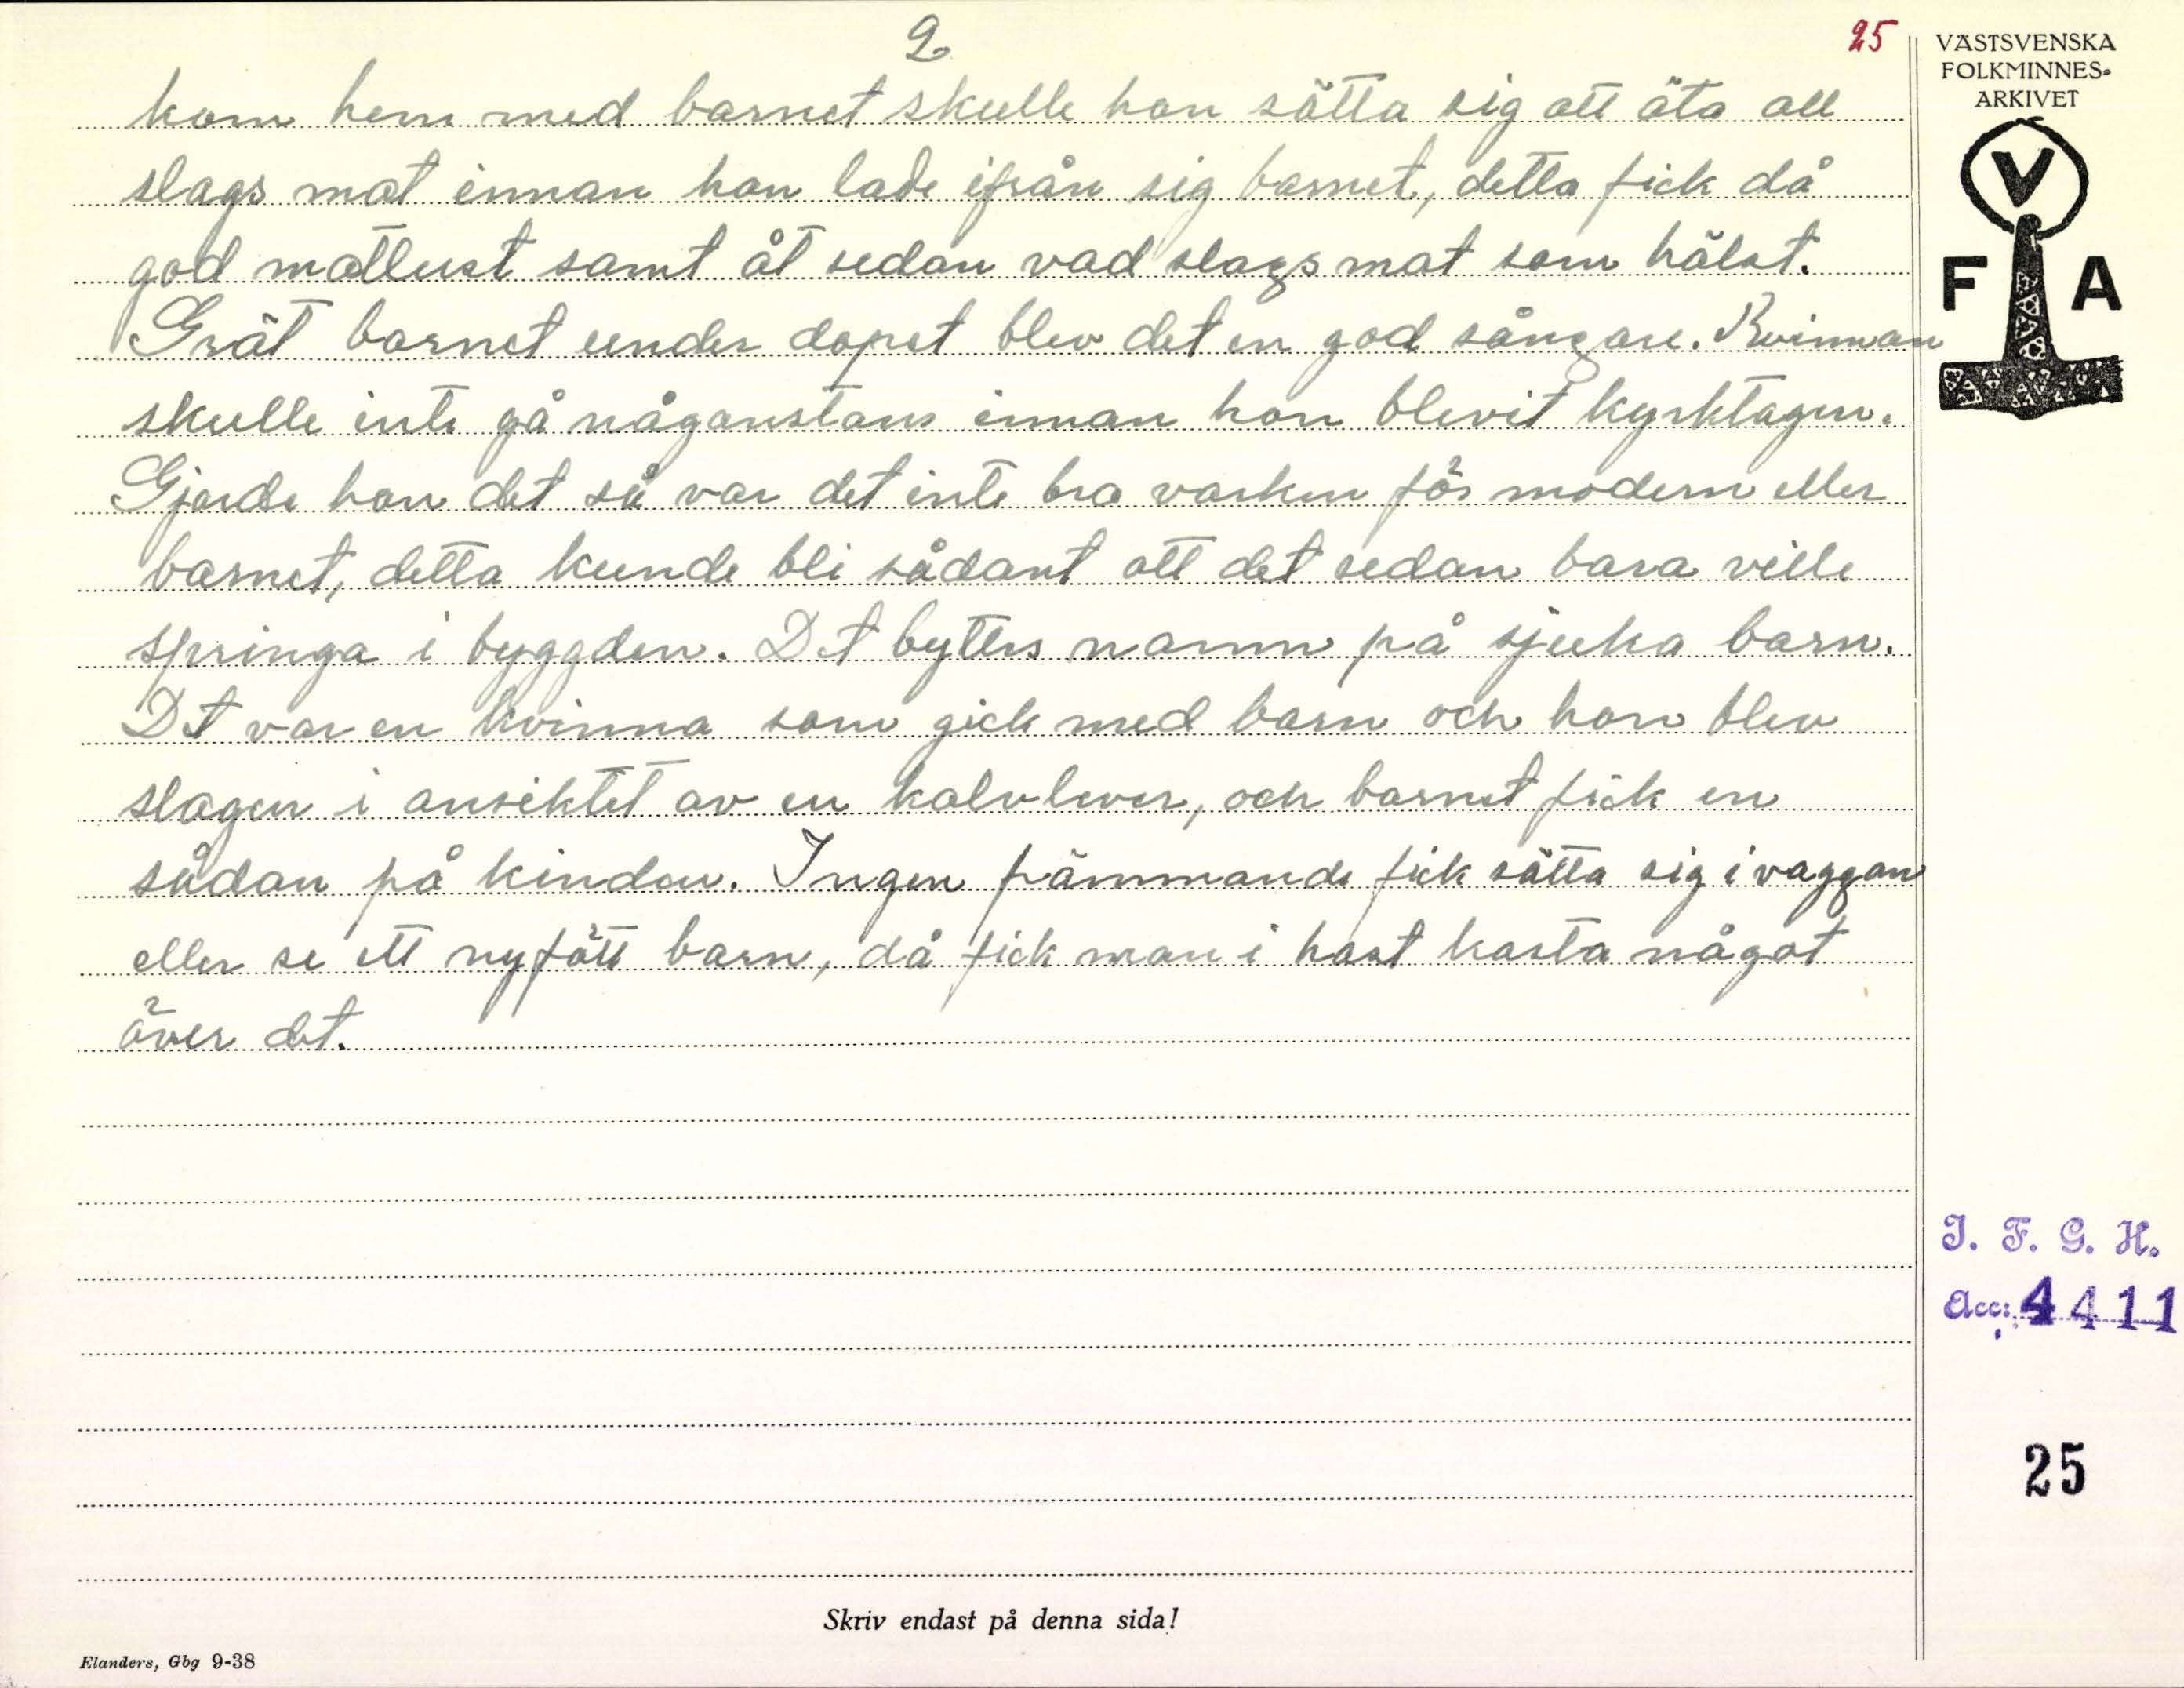 2
25
kom hem med barnet skulle hon sätta sig att äta all
slags mat innan hon lade ifrån sig barnet, detta fick då
god matlust samt åt sedan vad slags mat som hälst.
Grät barnet under dopet blev det en god sångare. Kvinnan
skulle inte gå någonstans innan hon blevit kyrktagen.
Gjorde hon det så var det inte bra varken för modern eller
barnet, detta kunde bli sådant att det sedan bara ville
springa i byggden. Det byttes namn på sjuka barn.
Det var en kvinna som gick med barn och hon blev
slagen i ansiktet av en kalvlever, och barnet fick en
sådan på kinden. Ingen främmande fick sätta sig i vaggan
eller se ett nyfött barn, då fick man i hast kasta något
över det.
VÄSTSVENSKA
FOLKMINNES-
ARKIVET
V
F A
I. F. G. H.
Acc: 4411
25
Skriv endast på denna sida!
Elanders, Gbg 9-38